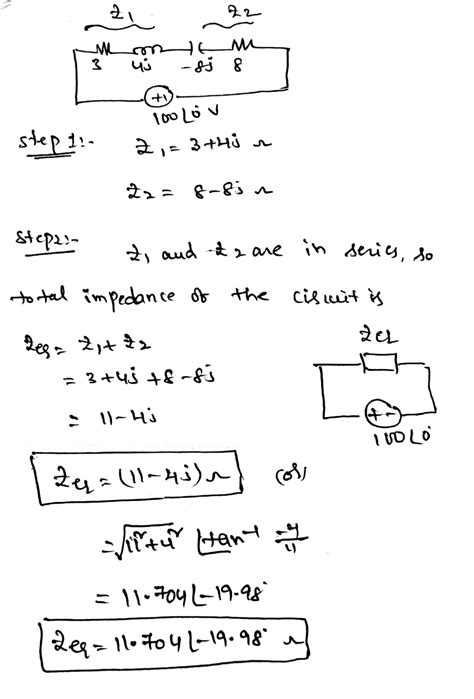 Z1 Z2
3 4j -8j 8
+
100∠0 V
Step 1:- Z1 = 3+4j Ω
Z2 = 8-8j Ω
Step2:- Z1 and Z2 are in series, so
total impedance of the circuit is
Zeq = Z1 + Z2
= 3+4j +8-8j
= 11-4j
Zeq
+ -
100∠0
Zeq = (11-4j) Ω (or)
= √11²+4² ∠tan⁻¹ -4/11
= 11.704∠-19.98°
Zeq = 11.704∠-19.98° Ω